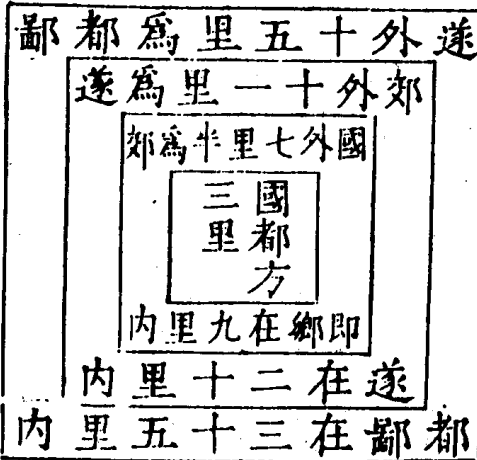 遂外十五里爲都鄙
郊外十一里爲遂
國外七里半爲郊
國都方
三里
即鄉在九里内
遂在二十里内
都鄙在三十五里内